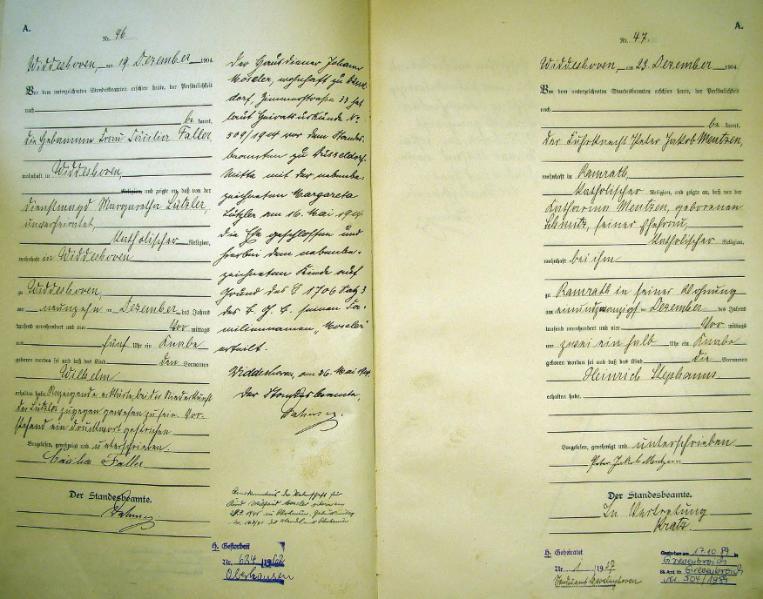 A.
Nr. 46
Widdeshoven, am 19. Dezember 1904
Vor dem unterzeichneten Standesbeamten erschien heute, der Persönlichkeit
nach
be kannt,
die Hebamme Frau Cäcilia Faller
wohnhaft in Widdeshoven
Religion, und zeigte an, daß von der
Dienstmagd Margaretha Lützler,
unverheiratet,
katholischer Religion,
wohnhaft in Widdeshoven
zu Widdeshoven,
am neunzehn ten Dezember des Jahres
tausend neunhundert und vier Vor mittags
um fünf Uhr ein Knabe
geboren worden sei und daß das Kind den Vornamen
Wilhelm
erhalten habe. Anzeigende erklärte bei der Niederkunft
der Lützler zugegen gewesen zu sein. Vor-
stehend ein Druckwort gestrichen
Vorgelesen, genehmigt und unterschrieben.
Cäcilia Faller
Der Standesbeamte.
Der Hausdiener Johann
wohnhaft zu Düssel-
dorf, Zimmerstraße 33 hat
laut Heiratsurkunde Nr.
309/1904 vor dem Standes-
beamten zu Düsseldorf
Mitte mit der nebenbe-
zeichneten Margareta
Lützler am 16. Mai
die Ehe geschlossen und
hierbei dem nebenbe-
zeichneten Kinde auf
Grund des § 1706 Satz 3
des B. G. B. seinen Fa-
miliennamen
erteilt.
Widdeshoven, am 26. Mai
Der Standesbeamte,
H. Gestorben
Nr. 624/1962
Oberhausen
A.
Nr. 47.
Widdeshoven, am 23. Dezember 1904
Vor dem unterzeichneten Standesbeamten erschien heute, der Persönlichkeit
nach
be kannt,
der Fuhrknecht Peter Jakob Mentzen,
wohnhaft in Ramrath,
katholischer Religion, und zeigte an, daß von der
Katharina Mentzen, geborenen
Schmitz, seiner Ehefrau,
katholischer Religion,
wohnhaft bei ihm
zu Ramrath in seiner Wohnung
am einundzwanzigsten Dezember des Jahres
tausend neunhundert und vier Vor mittags
um zwei ein halb Uhr ein Knabe
geboren worden sei und daß das Kind die Vornamen
Heinrich Stephanus
erhalten habe.
Vorgelesen, genehmigt und unterschrieben
Peter Jakob Mentzen
Der Standesbeamte.
In Vertretung
Kratz
H. Geheiratet
Nr. 1 /19
Gestorben am 17.10.89 in
Grevenbroich
St.Amt Grevenbroich
Nr. 304/1989